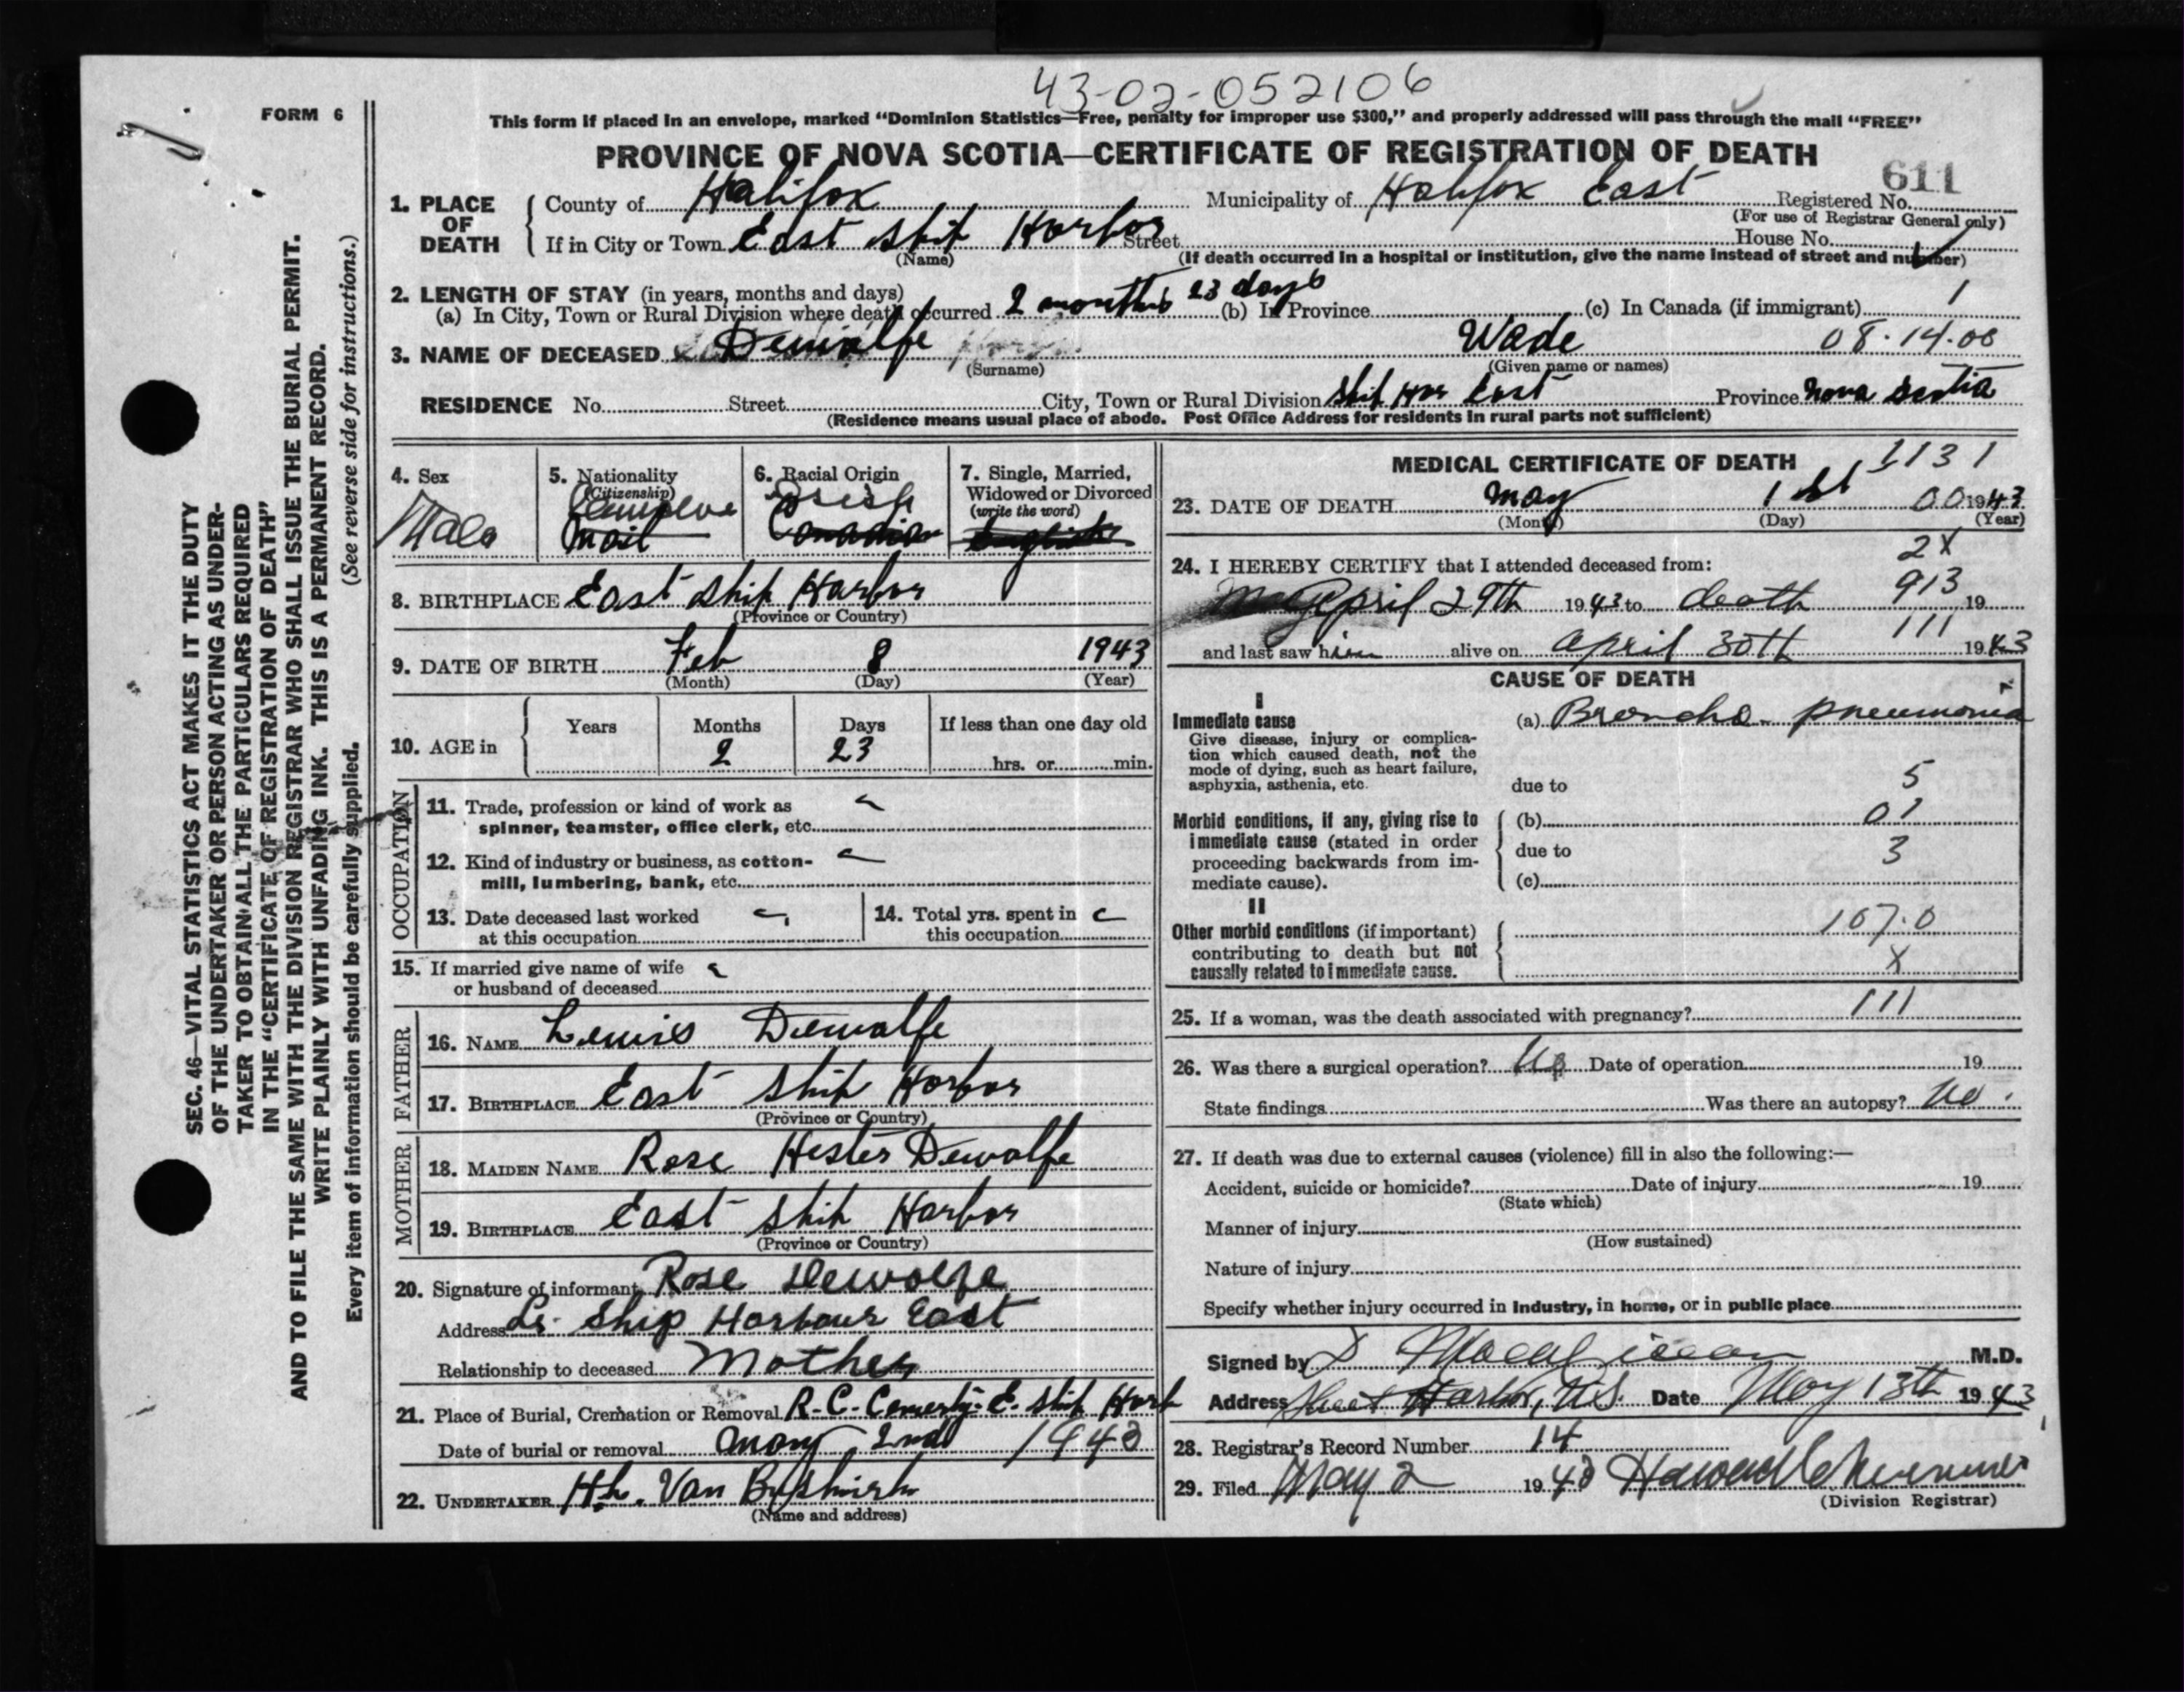 43-02-052106
FORM 6
This form if placed in an envelope, marked "Dominion Statistics—Free, penalty for improper use $300," and properly addressed will pass through the mail "FREE"
PROVINCE OF NOVA SCOTIA—CERTIFICATE OF REGISTRATION OF DEATH
611
1. PLACE OF DEATH
County of Halifax Municipality of Halifax East Registered No.
(For use of Registrar General only)
If in City or Town East Ship Harbor Street House No.
(Name) (If death occurred in a hospital or institution, give the name instead of street and number)
2. LENGTH OF STAY (in years, months and days)
(a) In City, Town or Rural Division where death occurred 2 months 23 days (b) In Province (c) In Canada (if immigrant) 1
3. NAME OF DECEASED Dewolfe Wade 08.14.00
(Surname) (Given name or names)
RESIDENCE No. Street City, Town or Rural Division Ship Har East Province Nova Scotia
(Residence means usual place of abode. Post Office Address for residents in rural parts not sufficient)
4. Sex
Male
5. Nationality
(Citizenship)
6. Racial Origin
Canadian
7. Single, Married,
Widowed or Divorced
(write the word)
English
8. BIRTHPLACE East Ship Harbor
(Province or Country)
9. DATE OF BIRTH Feb 8 1943
(Month) (Day) (Year)
10. AGE in
Years Months Days If less than one day old
2 23 hrs. or min.
OCCUPATION
11. Trade, profession or kind of work as
spinner, teamster, office clerk, etc.
12. Kind of industry or business, as cotton-
mill, lumbering, bank, etc.
13. Date deceased last worked
at this occupation
14. Total yrs. spent in
this occupation
15. If married give name of wife
or husband of deceased
FATHER
16. NAME Lewis Dewolfe
17. BIRTHPLACE East Ship Harbor
(Province or Country)
MOTHER
18. MAIDEN NAME Rose Hester Dewolfe
19. BIRTHPLACE East Ship Harbor
(Province or Country)
20. Signature of informant Rose Dewolfe
Address Lr. Ship Harbour East
Relationship to deceased Mother
21. Place of Burial, Cremation or Removal R.C. E. Ship Harb
Date of burial or removal May 2nd 1943
22. UNDERTAKER Van
(Name and address)
MEDICAL CERTIFICATE OF DEATH 1131
23. DATE OF DEATH May 1st 00 1943
(Month) (Day) (Year)
2X
24. I HEREBY CERTIFY that I attended deceased from:
April 29th 1943 to death 913 19
and last saw him alive on April 30th 111 1943
CAUSE OF DEATH
I
Immediate cause
Give disease, injury or complica-
tion which caused death, not the
mode of dying, such as heart failure,
asphyxia, asthenia, etc.
(a) Broncho-pneumonia
due to 5
Morbid conditions, if any, giving rise to
immediate cause (stated in order
proceeding backwards from im-
mediate cause).
(b) 01
due to 3
(c)
II
Other morbid conditions (if important)
contributing to death but not
causally related to immediate cause.
107.0
X
25. If a woman, was the death associated with pregnancy? 111
26. Was there a surgical operation? No Date of operation 19
State findings Was there an autopsy? No.
27. If death was due to external causes (violence) fill in also the following:—
Accident, suicide or homicide? Date of injury 19
(State which)
Manner of injury
(How sustained)
Nature of injury
Specify whether injury occurred in industry, in home, or in public place
Signed by M.D.
Address Sheet Harbor, N.S. Date May 13th 1943
28. Registrar's Record Number 14
29. Filed May 2 1943
(Division Registrar)
SEC. 46—VITAL STATISTICS ACT MAKES IT THE DUTY
OF THE UNDERTAKER OR PERSON ACTING AS UNDER-
TAKER TO OBTAIN ALL THE PARTICULARS REQUIRED
IN THE "CERTIFICATE OF REGISTRATION OF DEATH"
AND TO FILE THE SAME WITH THE DIVISION REGISTRAR WHO SHALL ISSUE THE BURIAL PERMIT.
WRITE PLAINLY WITH UNFADING INK. THIS IS A PERMANENT RECORD.
Every item of information should be carefully supplied. (See reverse side for instructions.)